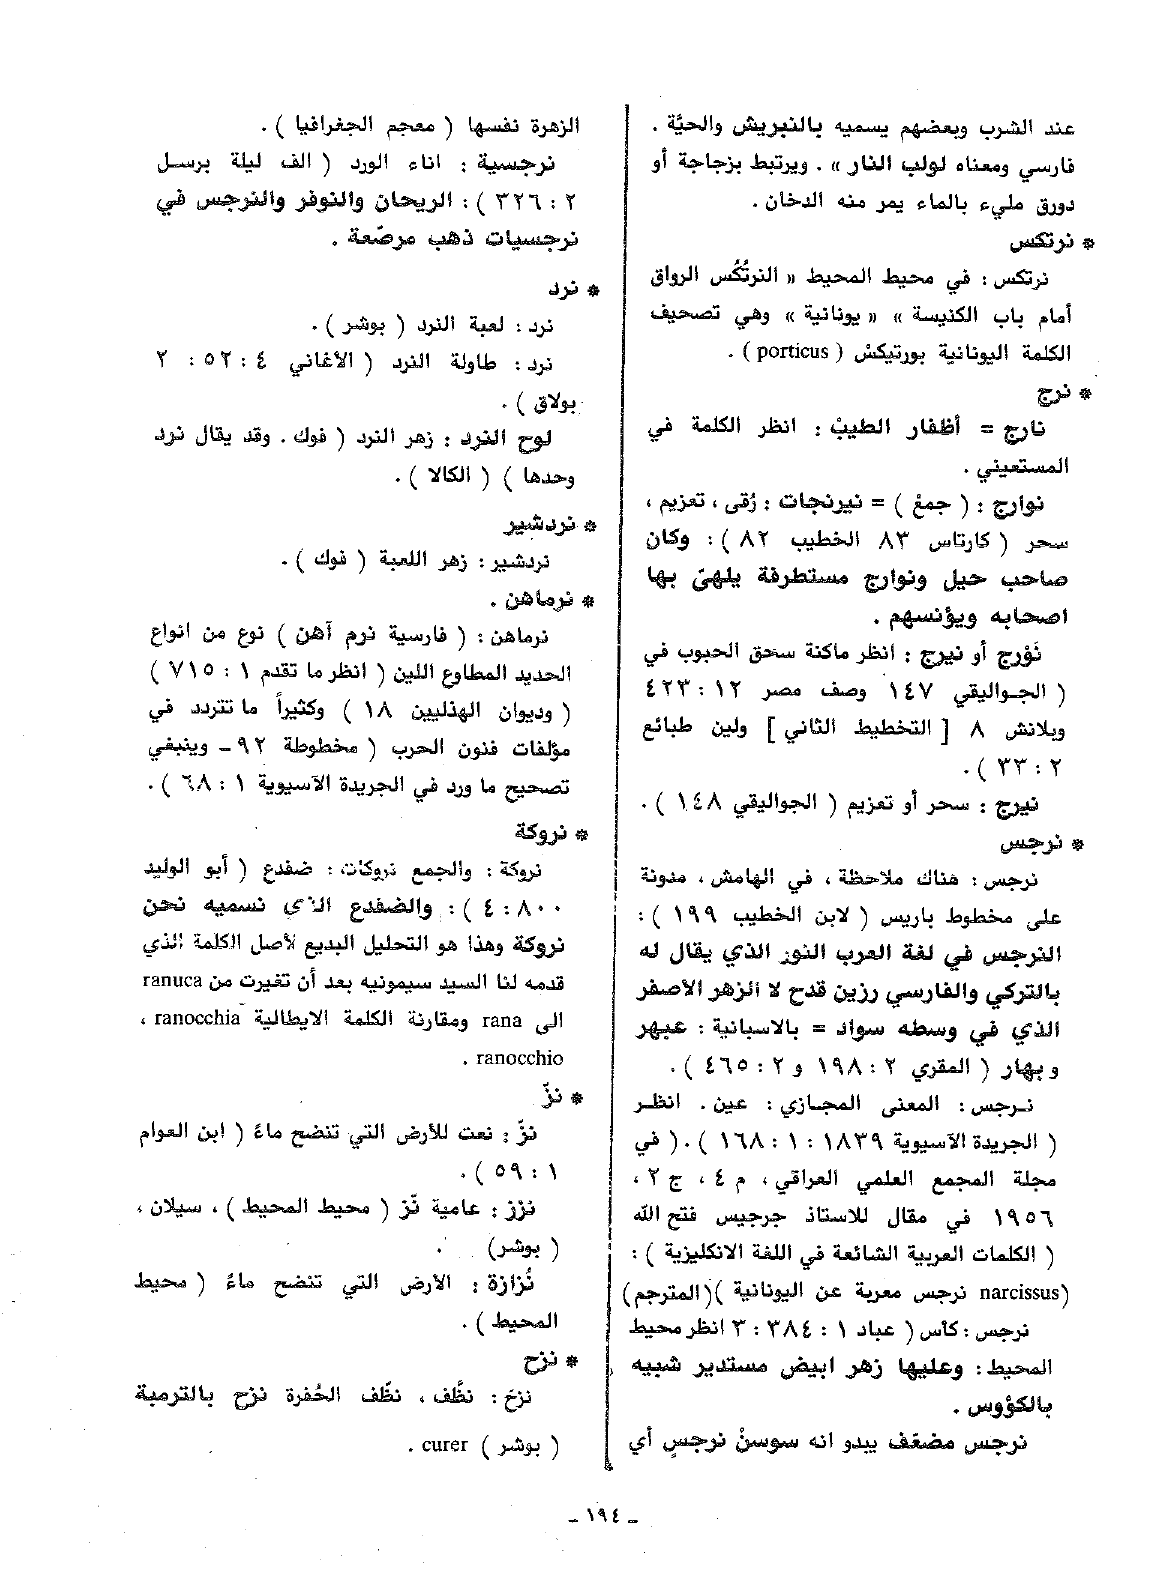 عند الشرب وبعضهم يسميه بالنبريش والحيَّة .
فارسي ومعناه لولب النار » . ويرتبط بزجاجة أو
دورق مليء بالماء يمر منه الدخان .
* نرتكس
نرتكس : في محيط المحيط « النرتُكُس الرواق
أمام باب الكنيسة » « يونانية » وهي تصحيف
الكلمة اليونانية بورتيكش ( porticus ) .
* نرج
نارج = أظفار الطيب : انظر الكلمة في
المستعيني .
نوارج : ( جمع ) = نيرنجات : رُقى ، تعزيم ،
سحر ( كارتاس ٨٣ الخطيب ٨٢ ) : وكان
صاحب حيل ونوارج مستطرفة يلهيّ بها
اصحابه ويؤنسهم .
نَوْرج أو نيرج : انظر ماكنة سحق الحبوب في
( الجواليقي ١٤٧ وصف مصر ١٢ : ٤٢٣
وبلانش ٨ [ التخطيط الثاني ] ولين طبائع
٢ : ٣٣ ) .
نيرج : سحر أو تعزيم ( الجواليقي ١٤٨ ) .
* نرجس
نرجس : هناك ملاحظة ، في الهامش ، مدونة
على مخطوط باريس ( لابن الخطيب ١٩٩ ) :
النرجس في لغة العرب النور الذي يقال له
بالتركي والفارسي رزين قدح لا الزهر الأصفر
الذي في وسطه سواد = بالاسبانية : عبهر
وبهار ( المقري ٢ : ١٩٨ و ٢ : ٤٦٥ ) .
نرجس : المعنى المجازي : عين . انظر
( الجريدة الآسيوية ١٨٣٩ : ١ : ١٦٨ ) . ( في
مجلة المجمع العلمي العراقي ، م ٤ ، ج ٢ ،
١٩٥٦ في مقال للاستاذ جرجيس فتح الله
( الكلمات العربية الشائعة في اللغة الانكليزية ) :
(narcissus نرجس معربة عن اليونانية )(المترجم)
نرجس : كأس ( عباد ١ : ٣٨٤ : ٣ انظر محيط
المحيط : وعليها زهر ابيض مستدير شبيه
بالكؤوس .
نرجس مضعّف يبدو انه سوسنُ نرجسٍ أي
الزهرة نفسها ( معجم الجغرافيا ) .
نرجسية : اناء الورد ( الف ليلة برسل
٢ : ٣٢٦ ) : الريحان والنوفر والنرجس في
نرجسيات ذهب مرصّعة .
* نرد
نرد : لعبة النرد ( بوشر ) .
نرد : طاولة النرد ( الأغاني ٤ : ٥٢ : ٢
بولاق ) .
لوح النرد : زهر النرد ( فوك . وقد يقال نرد
وحدها ) ( الكالا ) .
* نردشير
نردشير : زهر اللعبة ( فوك ) .
* نرماهن .
نرماهن : ( فارسية نرم آهن ) نوع من انواع
الحديد المطاوع اللين ( انظر ما تقدم ١ : ٧١٥ )
( وديوان الهذليين ١٨ ) وكثيراً ما تتردد في
مؤلفات فنون الحرب ( مخطوطة ٩٢ - وينبغي
تصحيح ما ورد في الجريدة الآسيوية ١ : ٦٨ ) .
* نروكة
نروكة : والجمع نروكات : ضفدع ( أبو الوليد
٨٠٠ : ٤ ) : والضفدع الذي نسميه نحن
نروكة وهذا هو التحليل البديع لأصل الكلمة الذي
قدمه لنا السيد سيمونيه بعد أن تغيرت من ranuca
الى rana ومقارنة الكلمة الايطالية ranocchia ،
ranocchio .
* نزّ
نزّ : نعت للأرض التي تنضح ماءً ( ابن العوام
١ : ٥٩ ) .
نزز : عامية نّز ( محيط المحيط ) ، سيلان ،
( بوشر ) .
نُزازة : الأرض التي تنضح ماءً ( محيط
المحيط ) .
* نزح
نزحَ : نظَّف ، نظّف الحُفرة نزح بالترمبة
( بوشر ) curer .
- ١٩٤ -